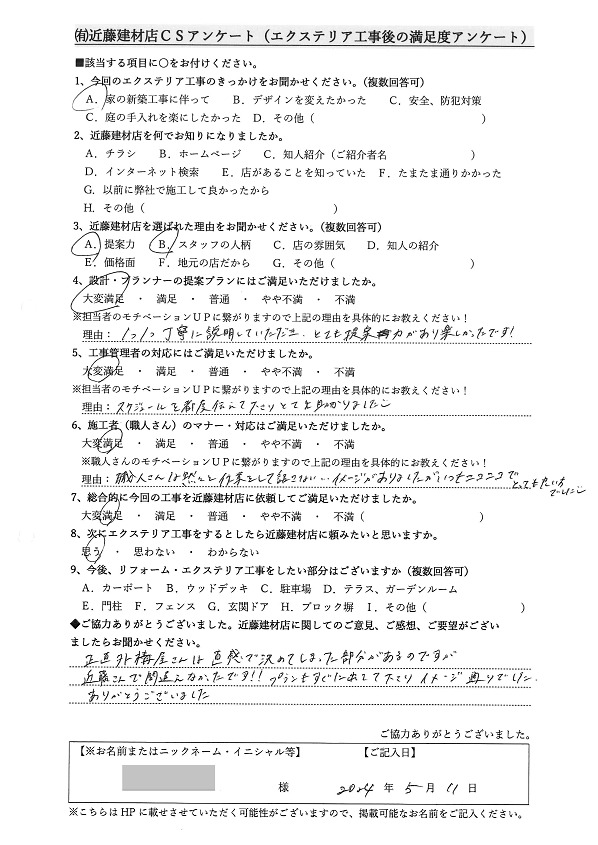 ㈲近藤建材店ＣＳアンケート（エクステリア工事後の満足度アンケート）
■該当する項目に〇をお付けください。
1、今回のエクステリア工事のきっかけをお聞かせください。（複数回答可）
A．家の新築工事に伴って　B．デザインを変えたかった　C．安全、防犯対策
C．庭の手入れを楽にしたかった　D．その他（　）
2、近藤建材店を何でお知りになりましたか。
A．チラシ　B．ホームページ　C．知人紹介（ご紹介者名　）
D．インターネット検索　E．店があることを知っていた　F．たまたま通りかかった
G．以前に弊社で施工して良かったから
H．その他（　）
3、近藤建材店を選ばれた理由をお聞かせください。（複数回答可）
A．提案力　B．スタッフの人柄　C．店の雰囲気　D．知人の紹介
E．価格面　F．地元の店だから　G．その他（　）
4、設計・プランナーの提案プランにはご満足いただけましたか。
大変満足　・　満足　・　普通　・　やや不満　・　不満
※担当者のモチベーションＵＰに繋がりますので上記の理由を具体的にお教えください！
理由：1つ1つ丁寧に説明していただき、とても提案力があり楽しかったです!
5、工事管理者の対応にはご満足いただけましたか。
大変満足　・　満足　・　普通　・　やや不満　・　不満
※担当者のモチベーションＵＰに繋がりますので上記の理由を具体的にお教えください！
理由：スケジュールを都度伝えて下さりとても助かりました
6、施工者（職人さん）のマナー・対応はご満足いただけましたか。
大変満足　・　満足　・　普通　・　やや不満　・　不満
※職人さんのモチベーションＵＰに繋がりますので上記の理由を具体的にお教えください！
理由：職人さんは黙々と作業をして話さない…イメージがありましたがいつもニコニコで
とても
でした
7、総合的に今回の工事を近藤建材店に依頼してご満足いただけましたか。
大変満足　・　満足　・　普通　・　やや不満　・　不満（　）
8、次にエクステリア工事をするとしたら近藤建材店に頼みたいと思いますか。
思う　・　思わない　・　わからない
9、今後、リフォーム・エクステリア工事をしたい部分はございますか（複数回答可）
A．カーポート　B．ウッドデッキ　C．駐車場　D．テラス、ガーデンルーム
E．門柱　F．フェンス　G．玄関ドア　H．ブロック塀　I．その他（　）
◆ご協力ありがとうございました。近藤建材店に関してのご意見、ご感想、ご要望がござい
ましたらお聞かせください。
正直外構屋さんは直感で決めてしまった部分があるのですが
近藤さんで間違えなかったです!! プランもすぐにあてて下さりイメージ通りでした。
ありがとうございました
ご協力ありがとうございました。
【※お名前またはニックネーム・イニシャル等】　【ご記入日】
様　2024 年 5 月 11 日
※こちらは HP に載せさせていただく可能性がございますので、掲載可能なお名前をご記入ください。